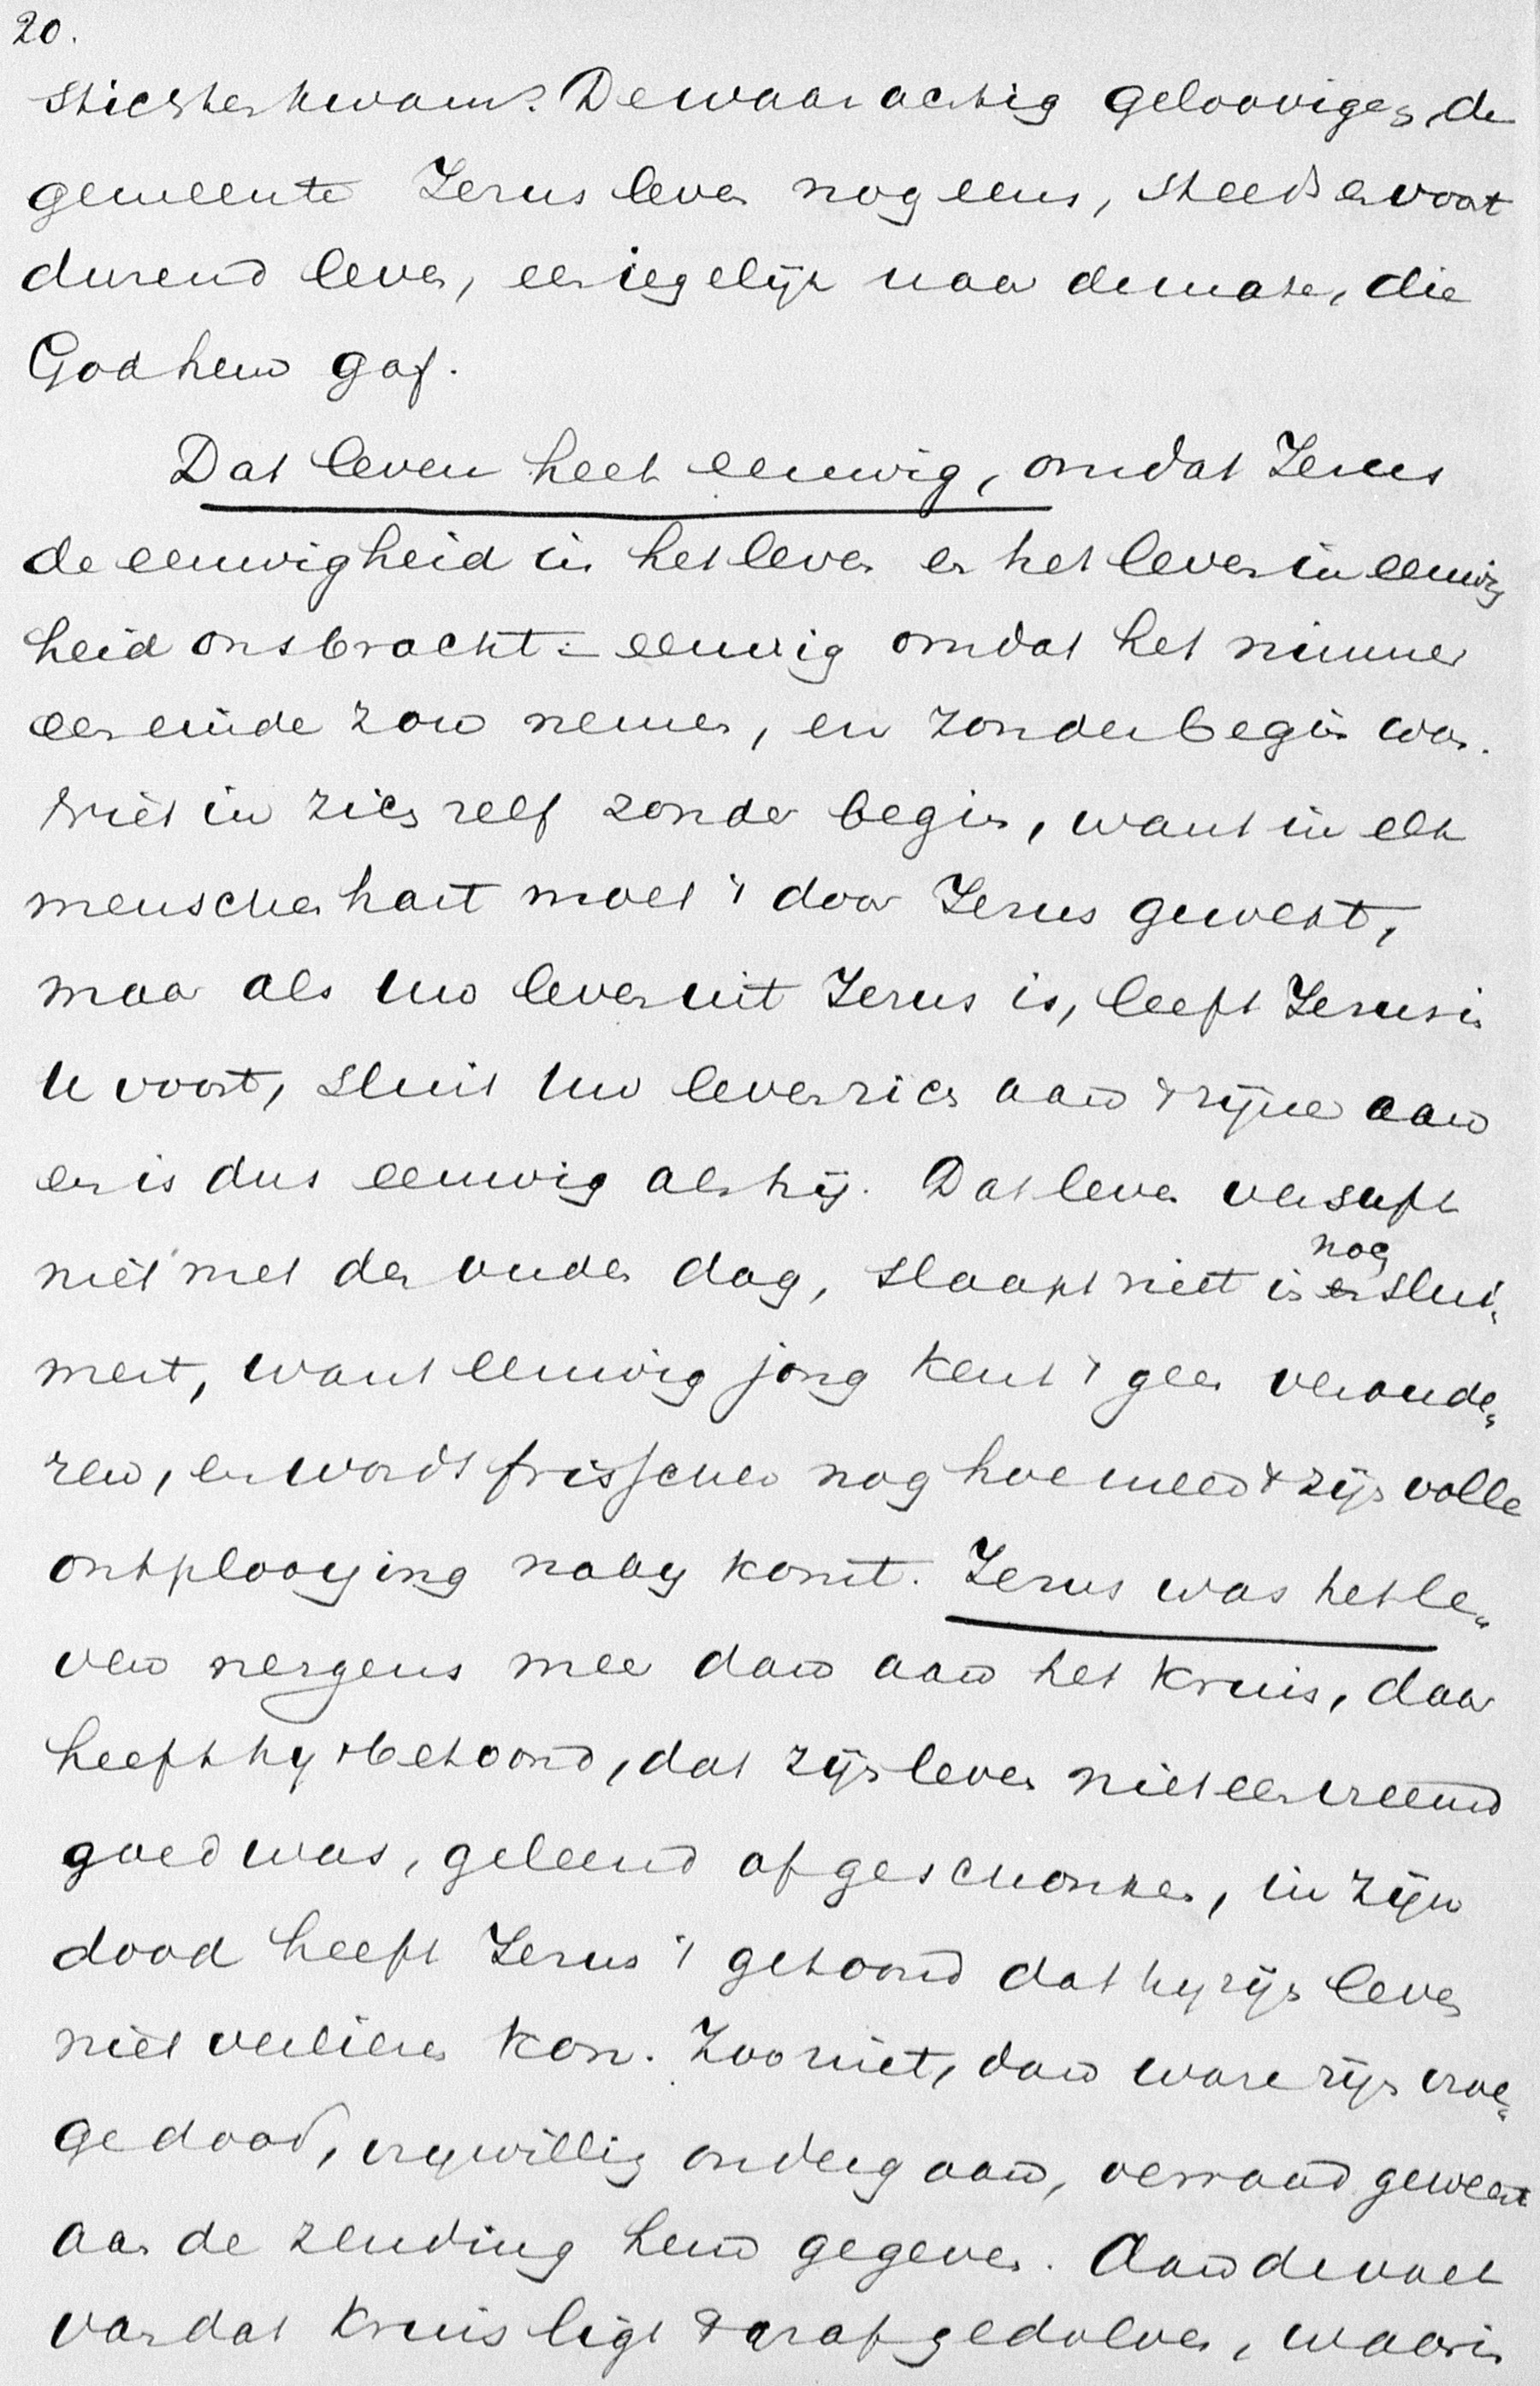 20.
stichter kwam? De waarachtig geloovigen, de
gemeente Jezus leven nog eens, steeds en voort
durend leven, een iegelijk naar de mate, die
God hem gaf.
Dat leven heet eeuwig, omdat Jezus
de eeuwigheid in het leven en het leven in eeuwig
heid ons bracht = eeuwig omdat het nimmer
een einde zou nemen, en zonder begin was.
Niet in zich zelf zonder begin, want in elk
menschenhart moet 't door Jezus gewekt,
maar als uw leven uit Jezus is, leeft Jezus in
U voort, sluit uw leven zich aan 't zijne aan
en is dus eeuwig als hij. Dat leven versuft
niet met den ouden dag, slaapt niet in nog slui„
mert, want eeuwig jong kent 't geen veroude„
ren, en wordt frisscher nog hoe meer 't zijn volle
ontplooying naby komt. Jezus was het le„
ven nergens meer dan aan het kruis, daar
heeft hy 't betoond, dat zijn leven niet een vreemd
goed was, geleend of geschonken, in zijn
dood heeft Jezus 't getoond dat hy zijn leven
niet verliezen kon. Zoo niet, dan ware zijn vroe„
ge dood, vrywillig ondergaan, verraad geweest
aan de zending hem gegeven. Aan de voet
van dat kruis ligt 't graf gedolven, waarin